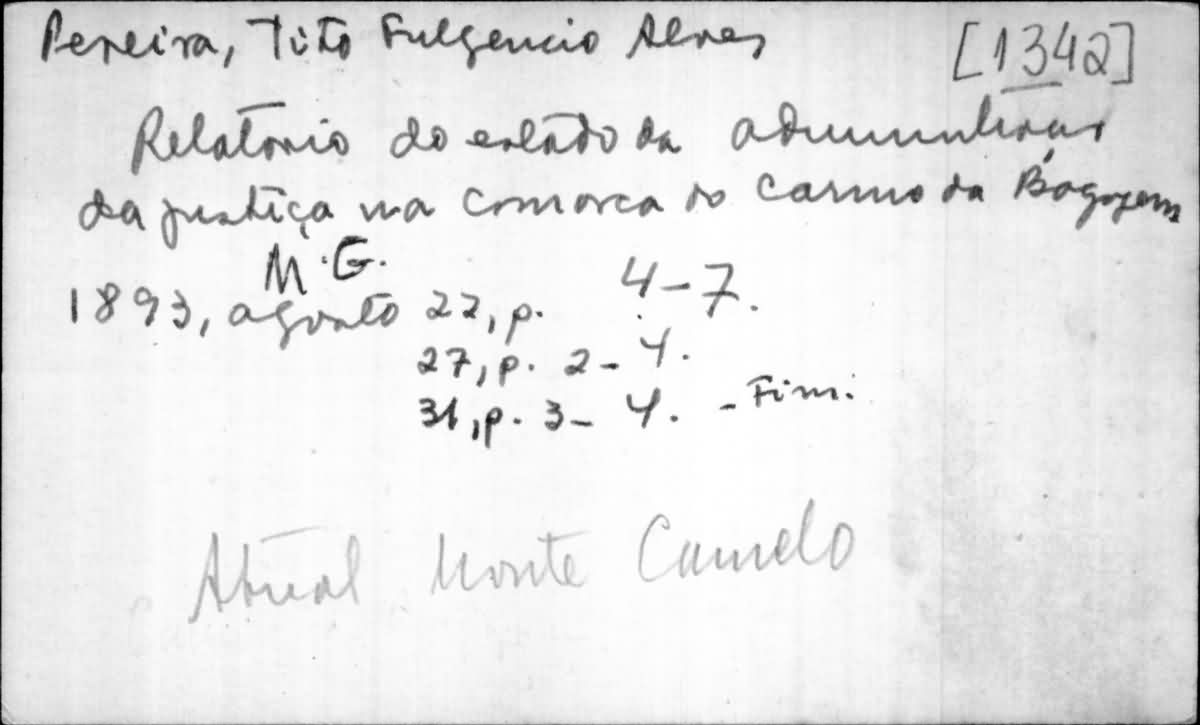 Pereira, Tito Fulgencio Alves [1342]
Relatório do estado da administração
da justiça na comarca do Carmo da Bagagem
M.G.
1893, agosto 22, p. 4-7.
27, p. 2-4.
31, p. 3-4. - Fim.
Atual Monte Carmelo